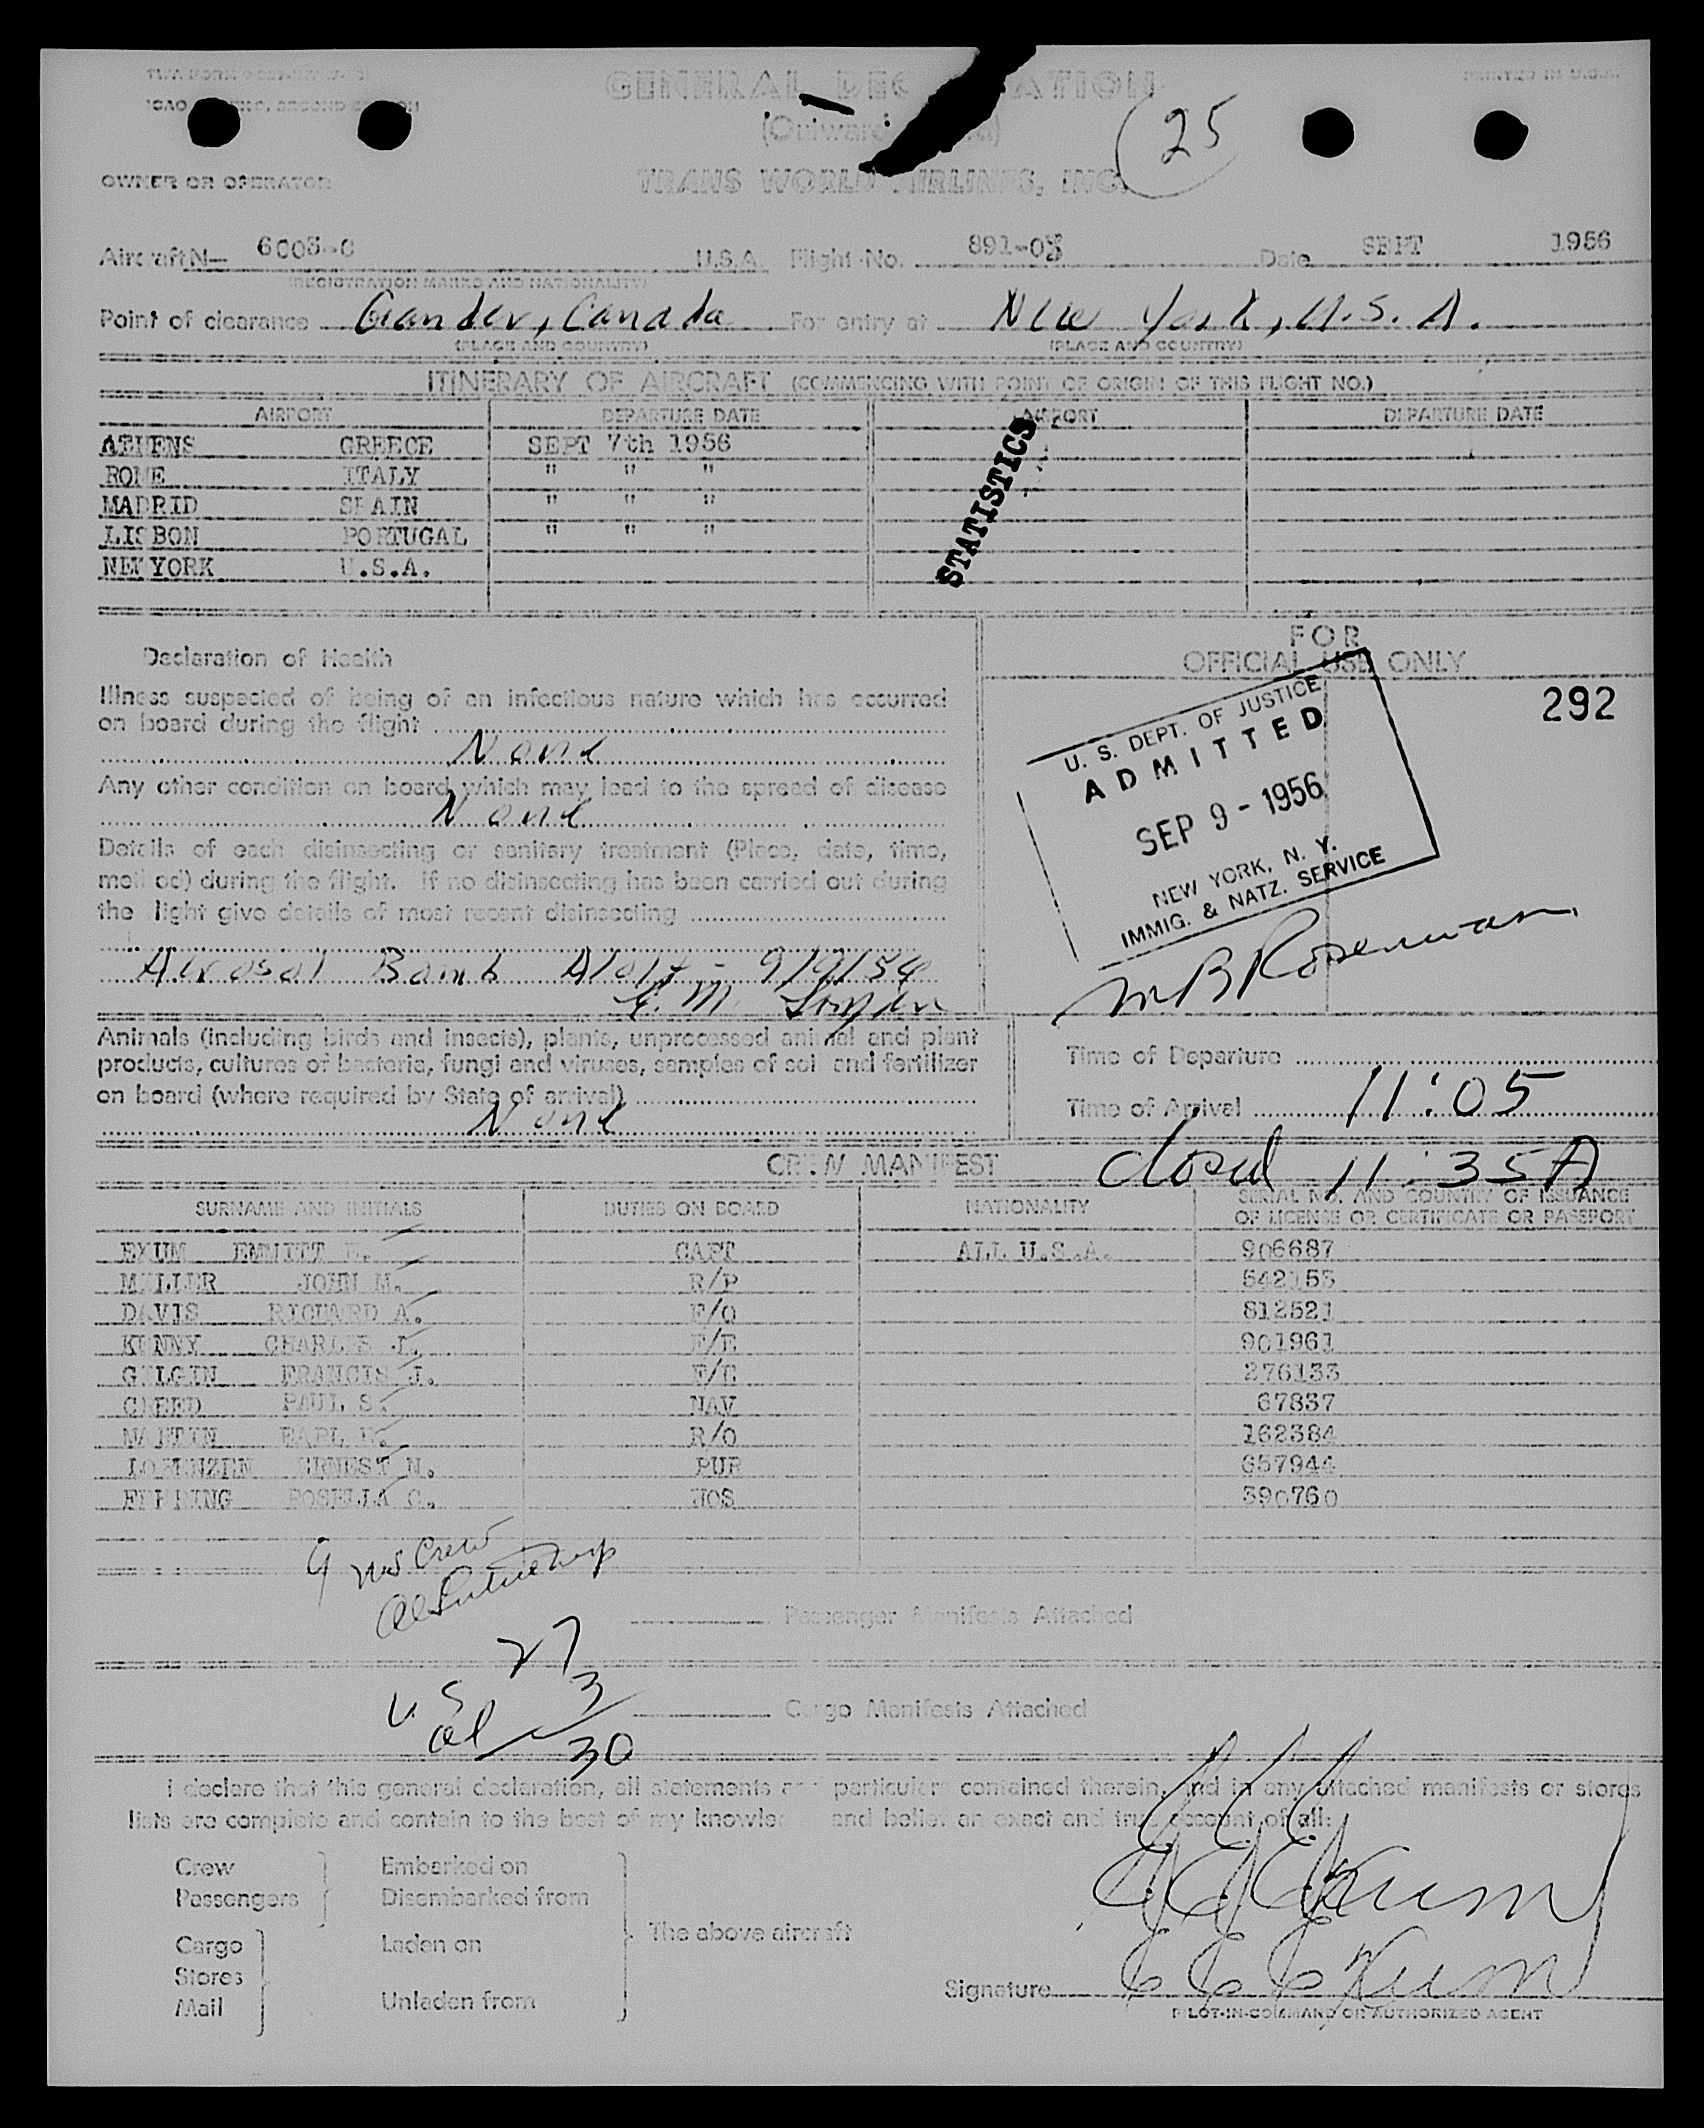 GENERAL DEC ATION
25
OWNER OR OPERATOR
TRANS WORLD AIRLINES, INC.
Aircraft N— 6003-C U.S.A. Flight No. 891-03 Date SEPT 1956
(REGISTRATION MARKS AND NATIONALITY)
Point of clearance Gander, Canada For entry at New York, U.S.A.
(PLACE AND COUNTRY) (PLACE AND COUNTRY)
ITINERARY OF AIRCRAFT (COMMENCING WITH POINT OF ORIGIN OF THIS FLIGHT NO.)
AIRPORT DEPARTURE DATE AIRPORT DEPARTURE DATE
ATHENS GREECE SEPT 7th 1956
ROME ITALY " " "
MADRID SPAIN " " "
LISBON PORTUGAL " " "
NEW YORK U.S.A.
STATISTICS
Declaration of Health
Illness suspected of being of an infectious nature which has occurred
on board during the flight
None
Any other condition on board which may lead to the spread of disease
None
Details of each disinsecting or sanitary treatment (Place, date, time,
method) during the flight. If no disinsecting has been carried out during
the flight give details of most recent disinsecting
Aerosol Bomb Aloft - 9/9/56
FOR
OFFICIAL USE ONLY
292
U. S. DEPT. OF JUSTICE
ADMITTED
SEP 9 - 1956
NEW YORK, N. Y.
IMMIG. & NATZ. SERVICE
M B Roseman
Animals (including birds and insects), plants, unprocessed animal and plant
products, cultures of bacteria, fungi and viruses, samples of soil and fertilizer
on board (where required by State of arrival)
None
Time of Departure
Time of Arrival 11:05
closed 11:35A
CREW MANIFEST
SURNAME AND INITIALS DUTIES ON BOARD NATIONALITY SERIAL NO. AND COUNTRY OF ISSUANCE
OF LICENSE OR CERTIFICATE OR PASSPORT
EXUM EMMITT E. CAPT ALL U.S.A. 906687
MILLER JOHN M. R/P 542153
DAVIS RICHARD A. F/O 812521
KENNY CHARLES J. F/E 901961
FRANCIS J. F/E 276133
CREED PAUL S. NAV 67837
MARTIN EARL R/O 162384
LORENZEN ERNEST N. PUR 657944
ROSELLA C. HOS 390760
9 US Crew
Passenger Manifests Attached
27
US 3
al
30
Cargo Manifests Attached
I declare that this general declaration, all statements and particulars contained therein, and in any attached manifests or stores
lists are complete and contain to the best of my knowledge and belief an exact and true account of all:
Crew
Passengers
Embarked on
Disembarked from
Cargo
Stores
Mail
Laden on
Unladen from
The above aircraft
E E Exum
Signature E E Exum
PILOT-IN-COMMAND OR AUTHORIZED AGENT